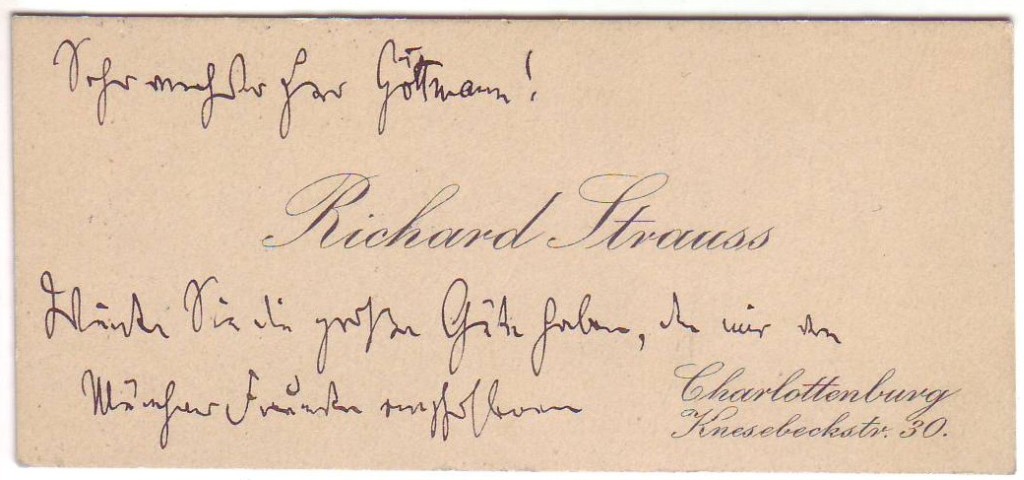 Sehr verehrter Herr Göttmann!
Richard Strauss
Würden Sie die große Güte haben, den mir von
Münchner Freunden empfohlenen
Charlottenburg
Knesebeckstr. 30.